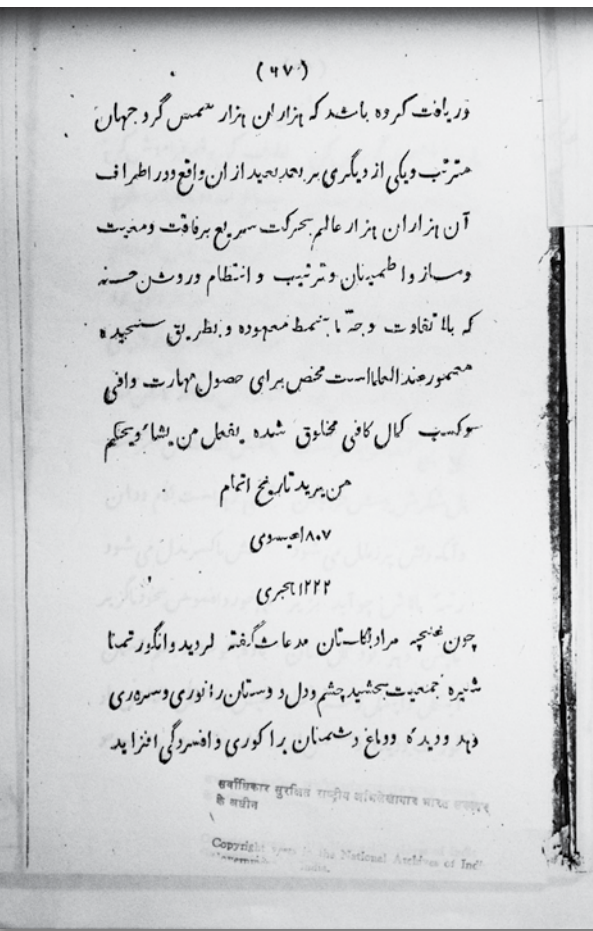 (۶۷)
دریافت کرده باشد که هزاران هزار شمس گرد جهان
مترتب ویکی از دیگری بر بعد بعید ازان واقع ودر اطراف
آن هزاران هزار عالم بحرکت سریع برفاقت ومعیت
وساز واطمینان وترتیب و انتظام وروشن حسنه
که بلا تفاوت وجدّ ما بنمط معهوده وبطریق سنجیده
معمور عند العلماست محض برای حصول مهارت وافی
وکسب کمال کافی مخلوق شده یفعل من یشاء ویحکم
من یرید تاریخ اتمام
۱۸۰۷عیسوی
۱۲۲۲هجری
چون غنچه مراد گلستان مدعا شگفته گردید وانگور تمنا
شیره جمعیت بخشید چشم ودل دوستان را نوری وسروری
دهد ودیده ودماغ دشمنان را کوری وافسردگی افزاید
सर्वाधिकार सुरक्षित राष्ट्रीय अभिलेखागार भारत सरकार
के अधीन
Copyright the National Archives of India